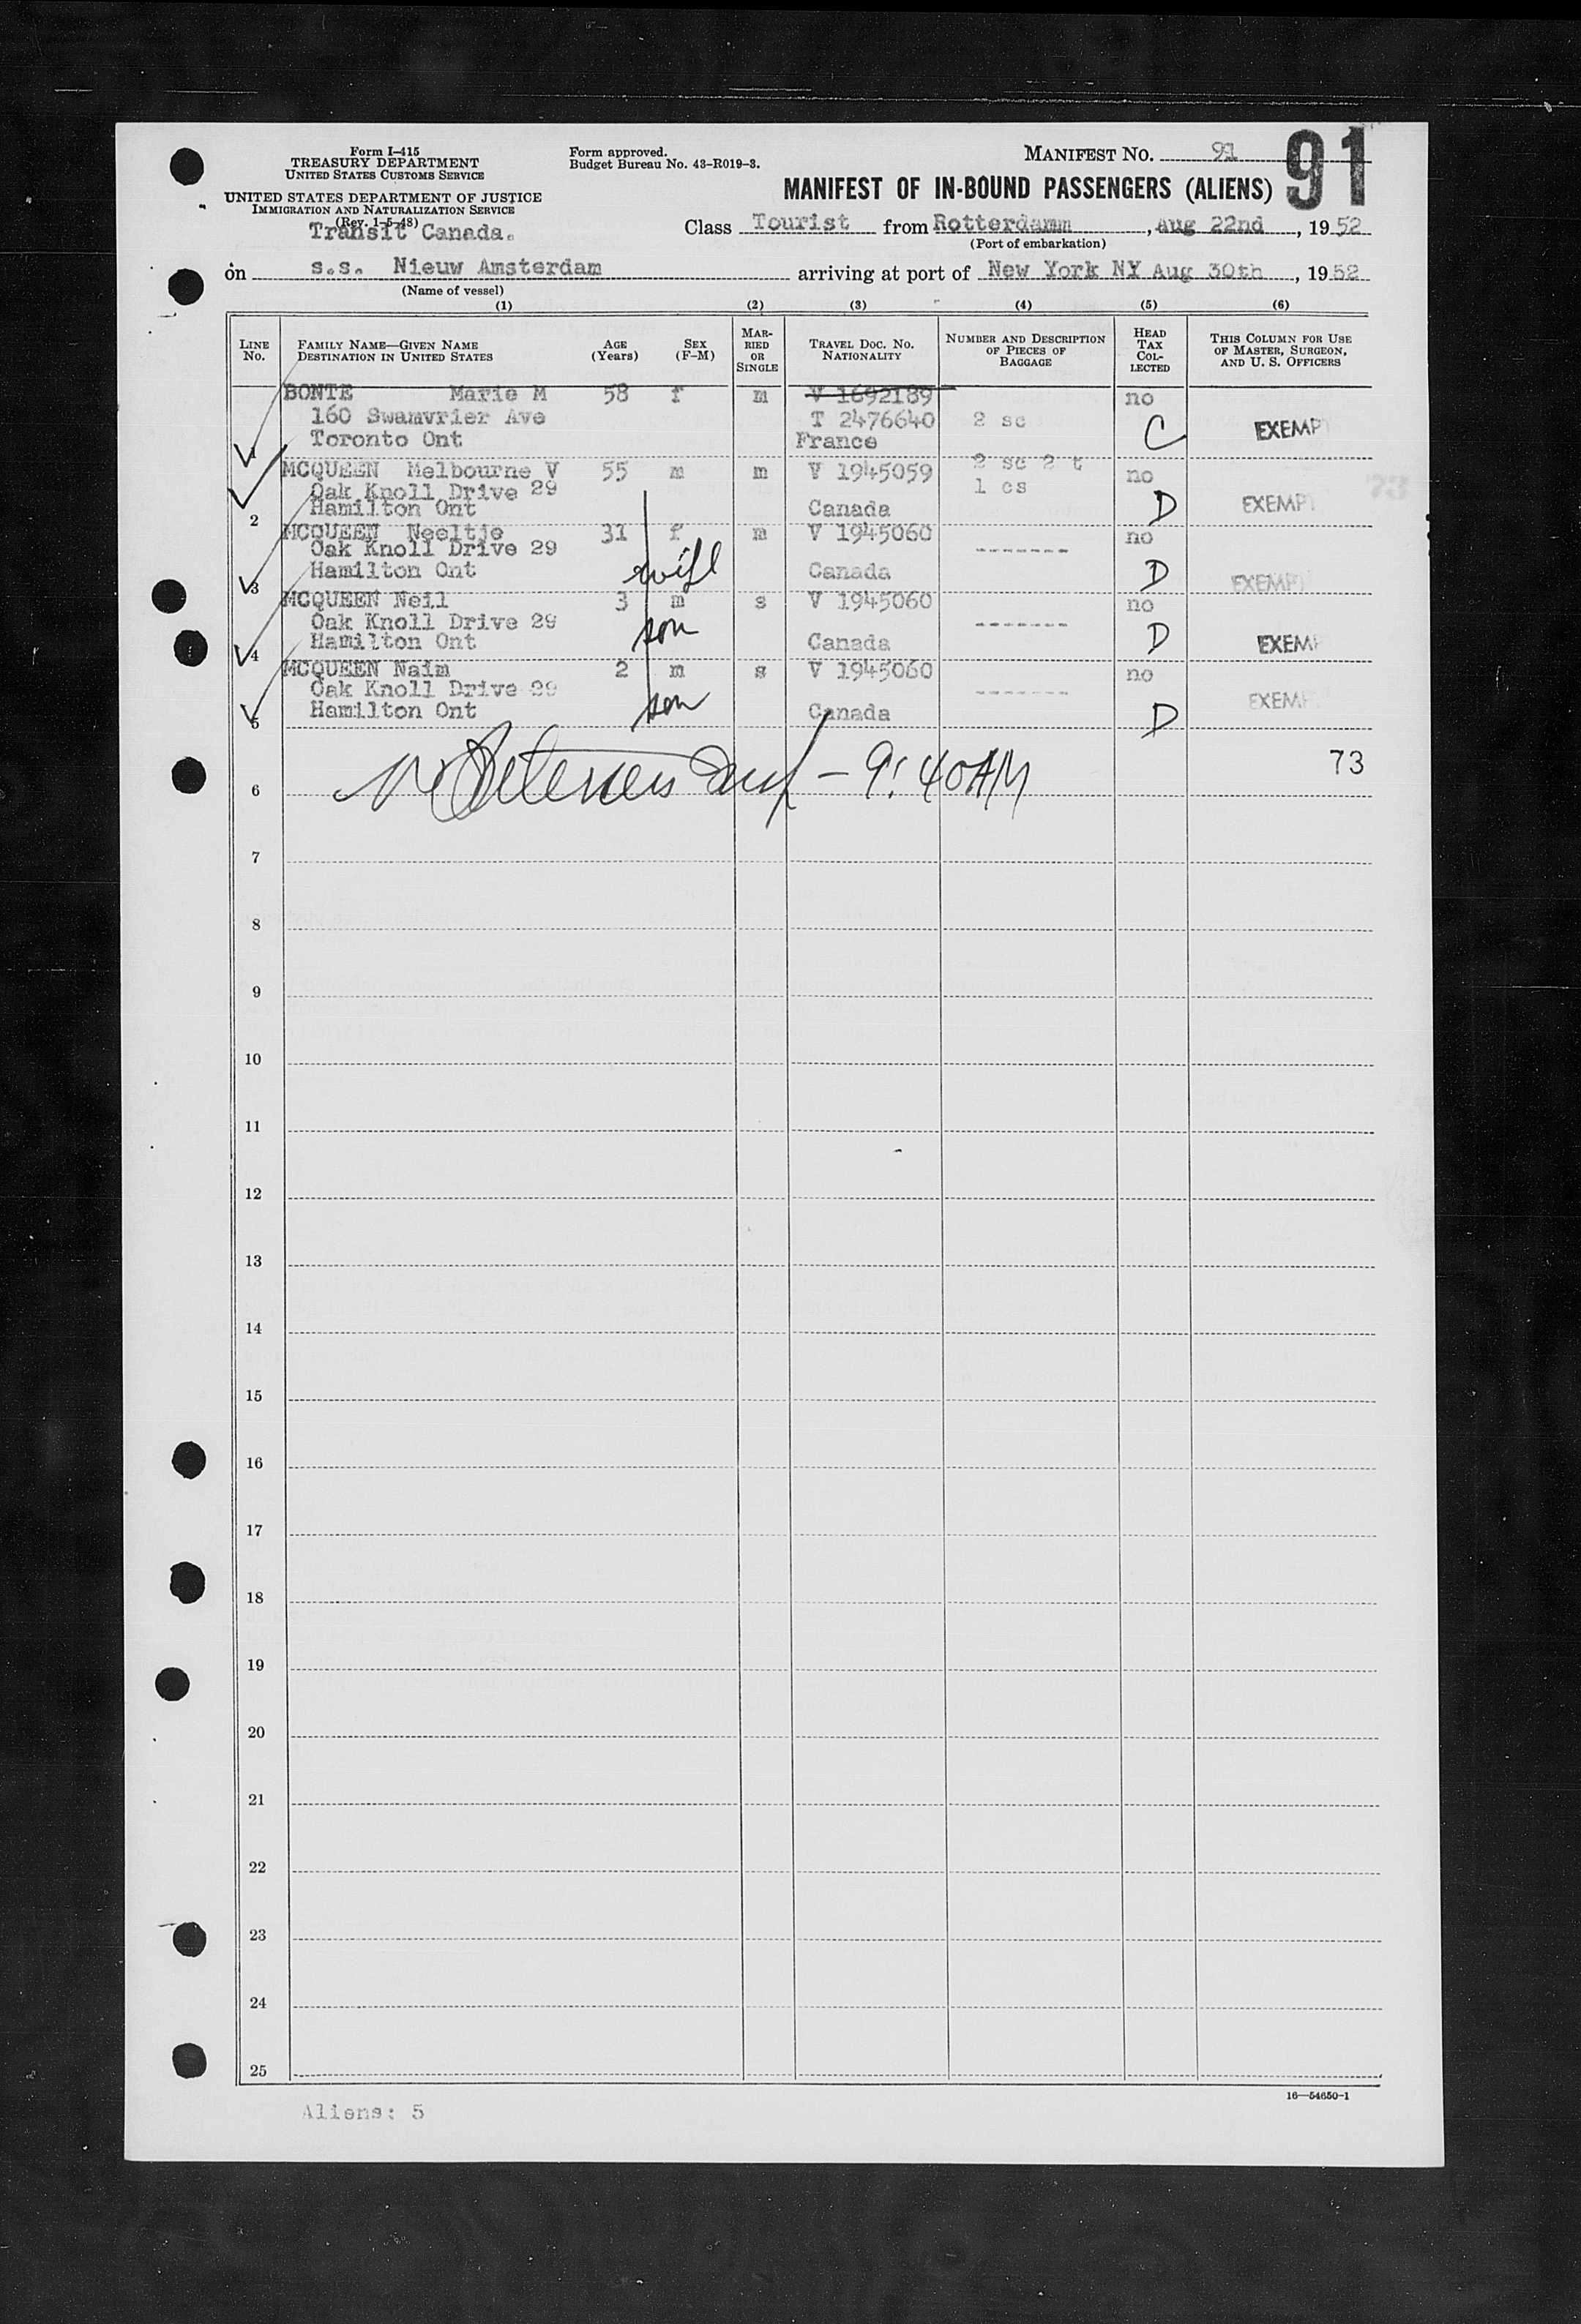 Form I-415
TREASURY DEPARTMENT
UNITED STATES CUSTOMS SERVICE
UNITED STATES DEPARTMENT OF JUSTICE
IMMIGRATION AND NATURALIZATION SERVICE
(Rev. 1-5-48)
Transit Canada.
Form approved.
Budget Bureau No. 43-R019-3.
MANIFEST NO. 91
91
MANIFEST OF IN-BOUND PASSENGERS (ALIENS)
Class Tourist from Rotterdamm, Aug 22nd, 1952
(Port of embarkation)
on s.s. Nieuw Amsterdam arriving at port of New York NY Aug 30th, 1952
(Name of vessel)
(1) (2) (3) (4) (5) (6)
LINE No.
FAMILY NAME—GIVEN NAME
DESTINATION IN UNITED STATES
AGE (Years)
SEX (F-M)
MARRIED OR SINGLE
TRAVEL DOC. NO.
NATIONALITY
NUMBER AND DESCRIPTION OF PIECES OF BAGGAGE
HEAD TAX COLLECTED
THIS COLUMN FOR USE OF MASTER, SURGEON, AND U. S. OFFICERS
BONTE Marie M 58 f m V 1692189 no
160 Swamvrier Ave T 2476640 2 sc C EXEMP
Toronto Ont France
1
MCQUEEN Melbourne V 55 m m V 1945059 2 sc 2 t no
Oak Knoll Drive 29 1 cs
2 Hamilton Ont Canada D EXEMP
MCQUEEN Neeltje 31 f m V 1945060 no
Oak Knoll Drive 29 -------
3 Hamilton Ont wife Canada D EXEMP
MCQUEEN Neil 3 m s V 1945060 no
Oak Knoll Drive 29 son -------
4 Hamilton Ont Canada D EXEM
MCQUEEN Naim 2 m s V 1945060 no
Oak Knoll Drive 29 -------
5 Hamilton Ont son Canada D EXEM
73
6 — 9:40AM 73
7
8
9
10
11
12
13
14
15
16
17
18
19
20
21
22
23
24
25
16—54650-1
Aliens: 5